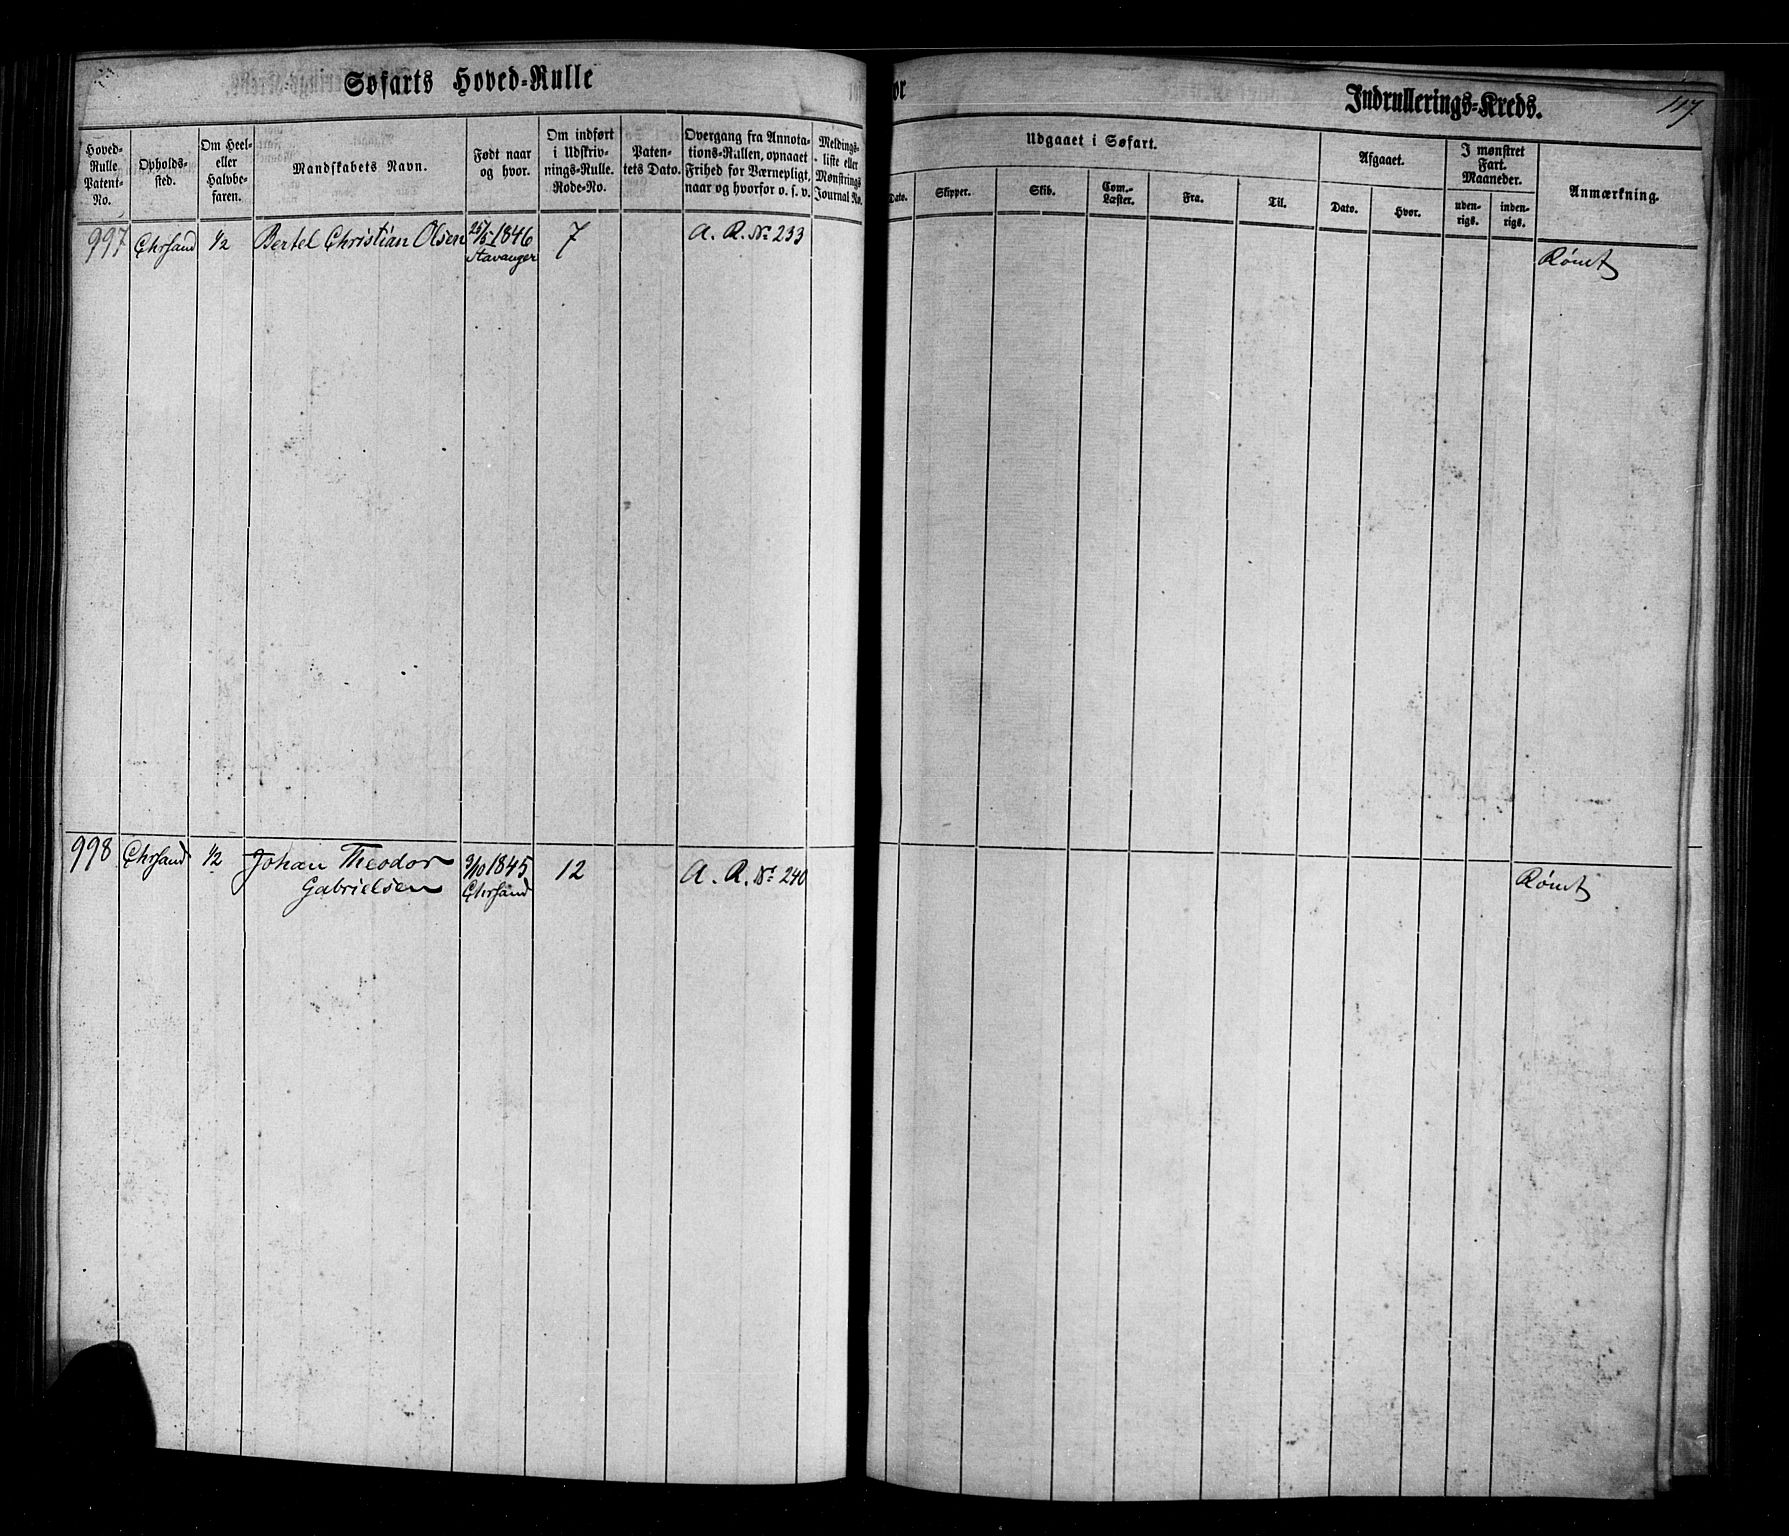 Søfarts Hoved-Rulle
for
Indrullerings-Kreds.
117
Hoved-Rulle Patent-No.
Opholds-sted.
Om Heel- eller Halvbe-faren.
Mandskabets Navn.
Født naar og hvor.
Om indført i Udskriv-nings-Rulle. Rode-No.
Paten-tets Dato.
Overgang fra Annota-tions-Rullen, opnaaet Frihed for Værnepligt, naar og hvorfor o. s. v.
Meldings-liste eller Mønstrings Journal No.
Udgaaet i Søfart.
Dato.
Skipper.
Skib.
Com.-Læster.
Fra.
Til.
Afgaaet.
Dato.
Hvor.
I mønstret Fart. Maaneder.
uden-rigs.
inden-rigs.
Anmærkning.
997 Chrsand ½ Bertel Christian Olsen 25/5 1846 7 A. R. No 233 Rømt
Stavanger
998 Chrsand ½ Johan Theodor 9/10 1845 12 A. R. No 240 Rømt
Gabrielsen Chrsand